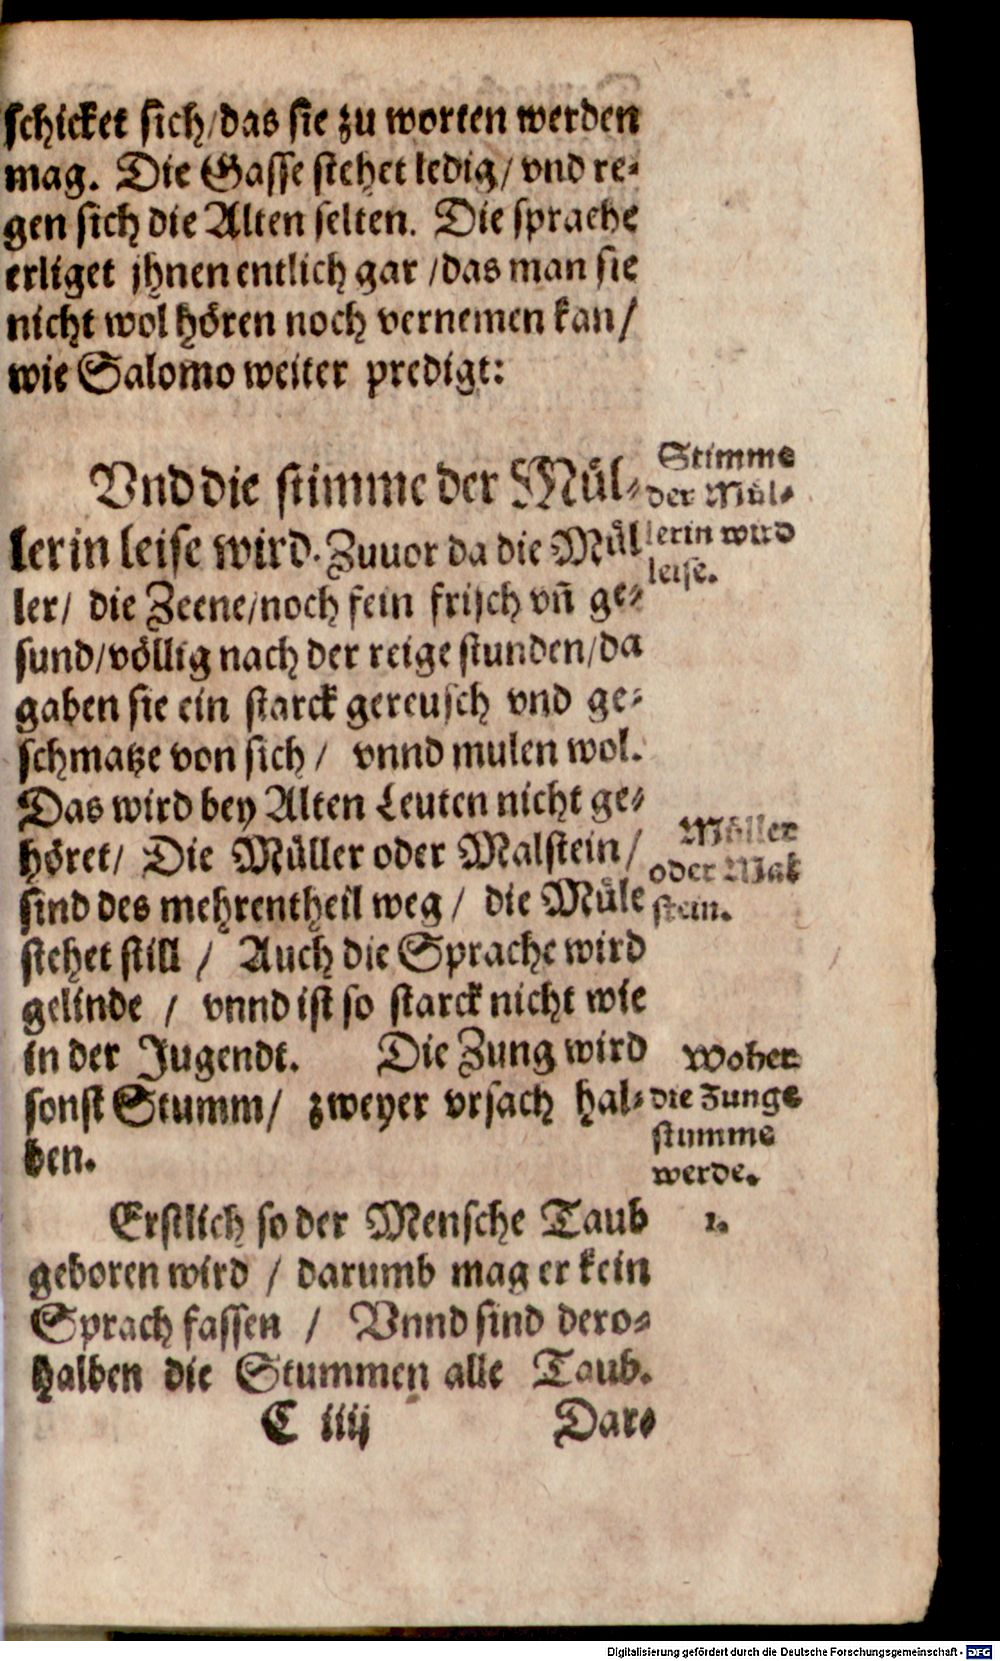 schicket sich/das sie zu worten werden
mag. Die Gasse stehet ledig/ vnd re-
gen sich die Alten selten. Die sprache
erliget jhnen entlich gar /das man sie
nicht wol hören noch vernemen kan/
wie Salomo weiter predigt:
Vnd die stimme der Mül-
lerin leise wird. Zuuor da die Mül
ler/ die Zeene/noch fein frisch vñ ge-
sund/völlig nach der reige stunden/da
gaben sie ein starck gereusch vnd ge-
schmatze von sich / vnnd mulen wol.
Das wird bey Alten Leuten nicht ge-
höret/ Die Müller oder Malstein/
sind des mehrentheil weg / die Müle
stehet still / Auch die Sprache wird
gelinde / vnnd ist so starck nicht wie
in der Jugendt. Die Zung wird
sonst Stumm/ zweyer vrsach hal-
ben.
Erstlich so der Mensche Taub
geboren wird / darumb mag er kein
Sprach fassen / Vnnd sind dero-
halben die Stummen alle Taub.
C iiij Dar-
Stimme
der Mül-
lerin wird
leise.
Müller
oder Mal
stein.
Woher
die Zunge
stumme
werde.
1.
Digitalisierung gefördert durch die Deutsche Forschungsgemeinschaft - DFG